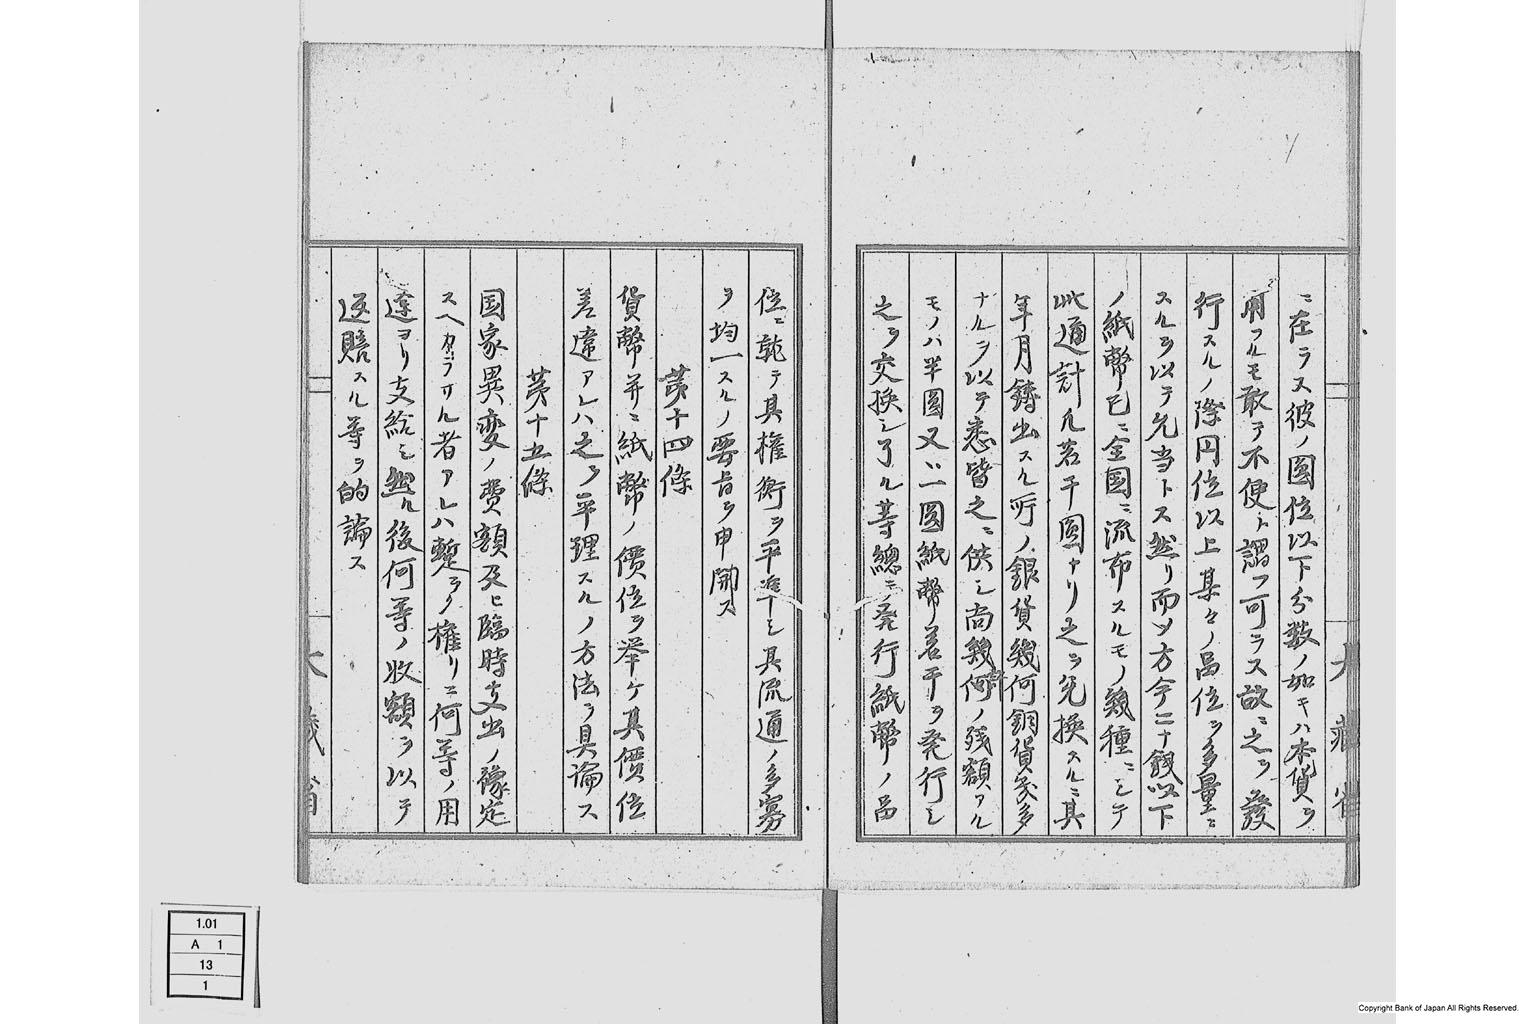 ニ在ラス彼ノ圓位以下分数ノ如キハ本貨ヲ
用フルモ敢テ不便ト謂フ可ラス故ニ之ヲ發
行スルノ際円位以上某々ノ品位ヲ多量ニ
スルヲ以テ允当トス然リ而ツ方今二十錢以下
ノ紙幣已ニ全国ニ流布スルモノ幾種ニシテ
此通計凡若干圓ナリ之ヲ兌換スルニ其
年月鋳出スル所ノ銀貨幾何銅貨幾多
ナルヲ以テ悉皆之ニ供シ尚幾何ノ残額アル
モノハ半圓又ハ一圓紙幣若干ヲ発行シ
之ヲ交換シ了ル等總テ発行紙幣ノ品
位ニ就テ其権衡ヲ平準シ其流通ノ多寡
ヲ均一スルノ要旨ヲ申開ス
第十四條
貨幣并ニ紙幣ノ價位ヲ挙ケ其價位
差違アレハ之ヲ平理スルノ方法ヲ具論ス
第十五條
国家異変ノ費額及ヒ臨時支出ノ豫定
スヘカラサル者アレハ暫ラク権リニ何等ノ用
途ヨリ支給シ然ル後何等ノ收額ヲ以テ
返賠スル等ヲ的論ス
大藏省
大藏省
1.01
A 1
13
1
Copyright Bank of Japan All Rights Reserved.